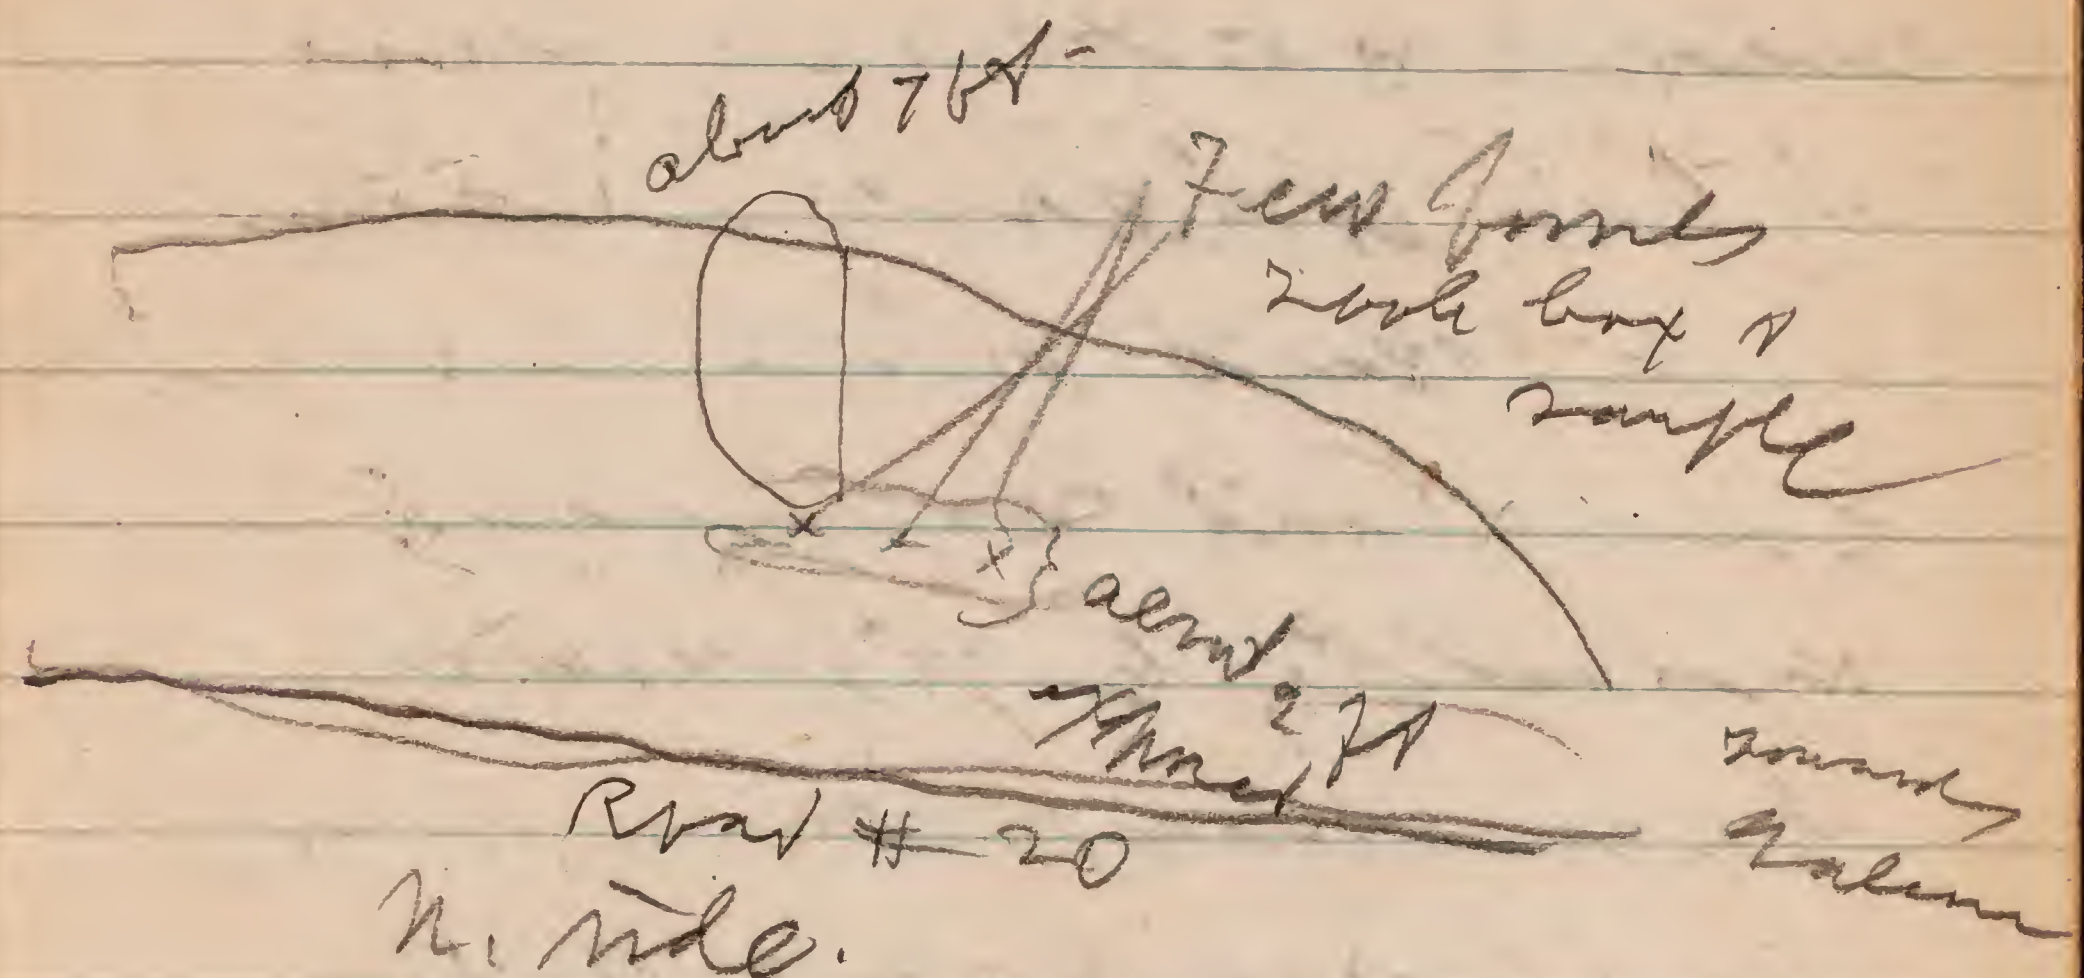 about 7 ft -
Few fossils
took box &
sample
about
2 ft
exposed
toward
Galena
Road # 20
N. side.